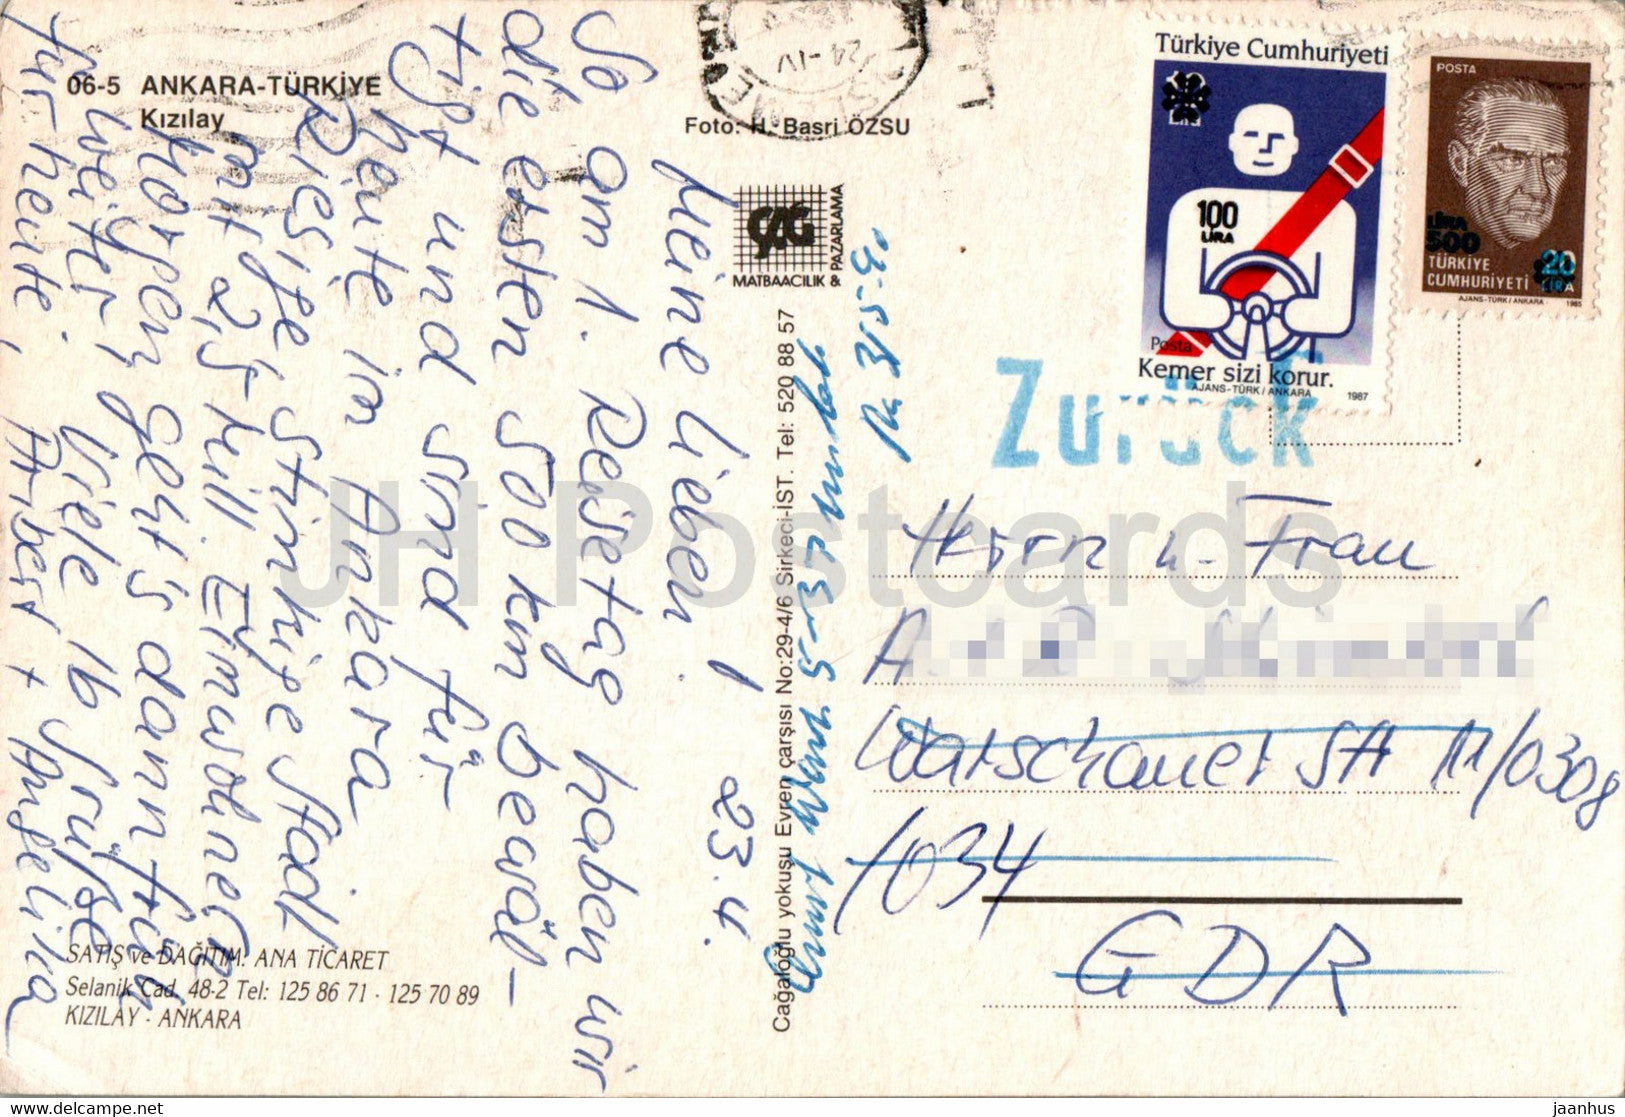 06-5 ANKARA-TÜRKİYE
Kızılay
Foto: H. Basri ÖZSU
ÇAĞ
MATBAACILIK &
PAZARLAMA
Cağaloğlu yokuşu Evren çarşısı No:29-4/6 Sirkeci-İST. Tel: 520 88 57
SATIŞ ve DAĞITIM: ANA TİCARET
Selanik Cad. 48-2 Tel: 125 86 71 - 125 70 89
KIZILAY - ANKARA
23.4.
Meine Lieben!
So am 1. Reisetag haben wir
die ersten 500 km bewäl-
tigt und sind für
heute in Ankara
Riesige stinkige Stadt
mit 2,5 Mill Einwohner
Morgen geht's dann
weiter. Viele lb Grüße
für heute, + Angelina
24-IV
Türkiye Cumhuriyeti
100
LIRA
Posta
Kemer sizi korur.
AJANS-TÜRK/ANKARA
1987
POSTA
LİRA
500
20
LİRA
TÜRKİYE
CUMHURİYETİ
AJANS-TÜRK/ANKARA
1985
Zurück
Herrn u. Frau
A
Warschauer Str 11/0308
1034
GDR
JH Postcards
delcampe.net
jaanhus